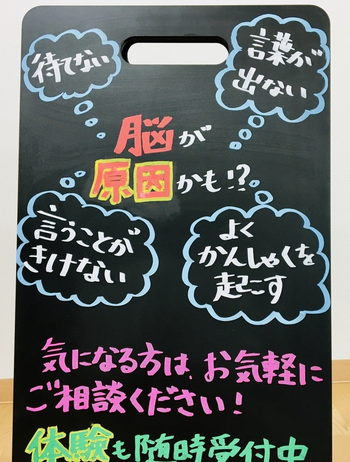 待てない
言葉が
出ない
脳が
原因かも!?
言うことが
きけない
よく
かんしゃくを
起こす
気になる方は、お気軽に
ご相談ください!
体験も随時受付中